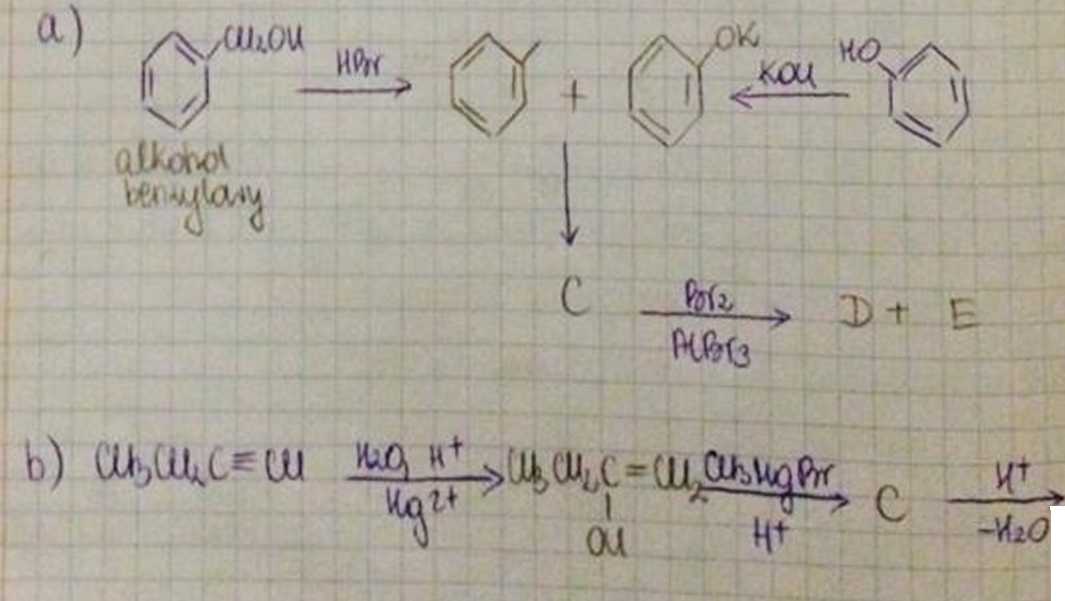 a) CH₂OH HBr + OK KOH HO
alkohol
benzylowy
C Br₂ AlBr₃ D + E
b) CH₃CH₂C≡CH H₂O, H⁺ Hg²⁺ CH₃CH₂C=CH₂ OH CH₃MgBr H⁺ C H⁺ -H₂O